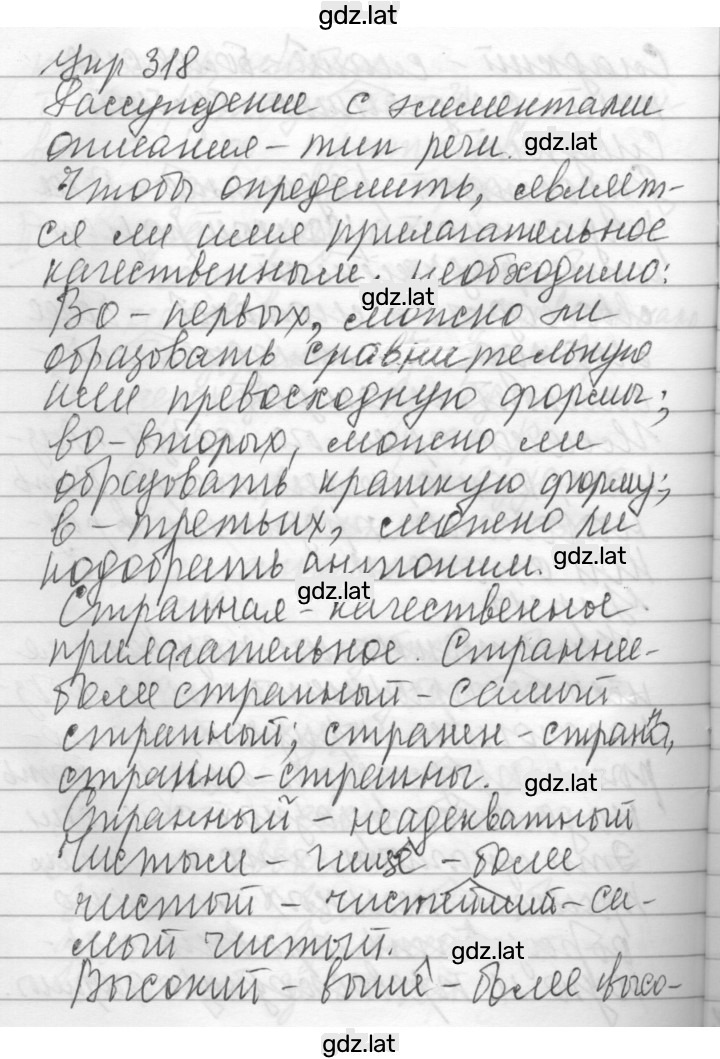 gdz.lat
Упр 318
Рассуждение с элементами
описания – тип речи.
gdz.lat
Чтобы определить, являет-
ся ли имя прилагательное
качественным. необходимо:
gdz.lat
Во-первых, можно ли
образовать сравнительную
или превосходную формы;
во-вторых, можно ли
образовать краткую форму;
в-третьих, можно ли
подобрать антоним.
gdz.lat
gdz.lat
Странная – качественное
прилагательное. Страннее-
более странный – самый
странный; странен – странна,
странно – странны.
gdz.lat
Странный – неадекватный
Чистым – чище – более
чистый – чистейший – са-
мый чистый.
gdz.lat
Высокий – выше – более высо-
gdz.lat